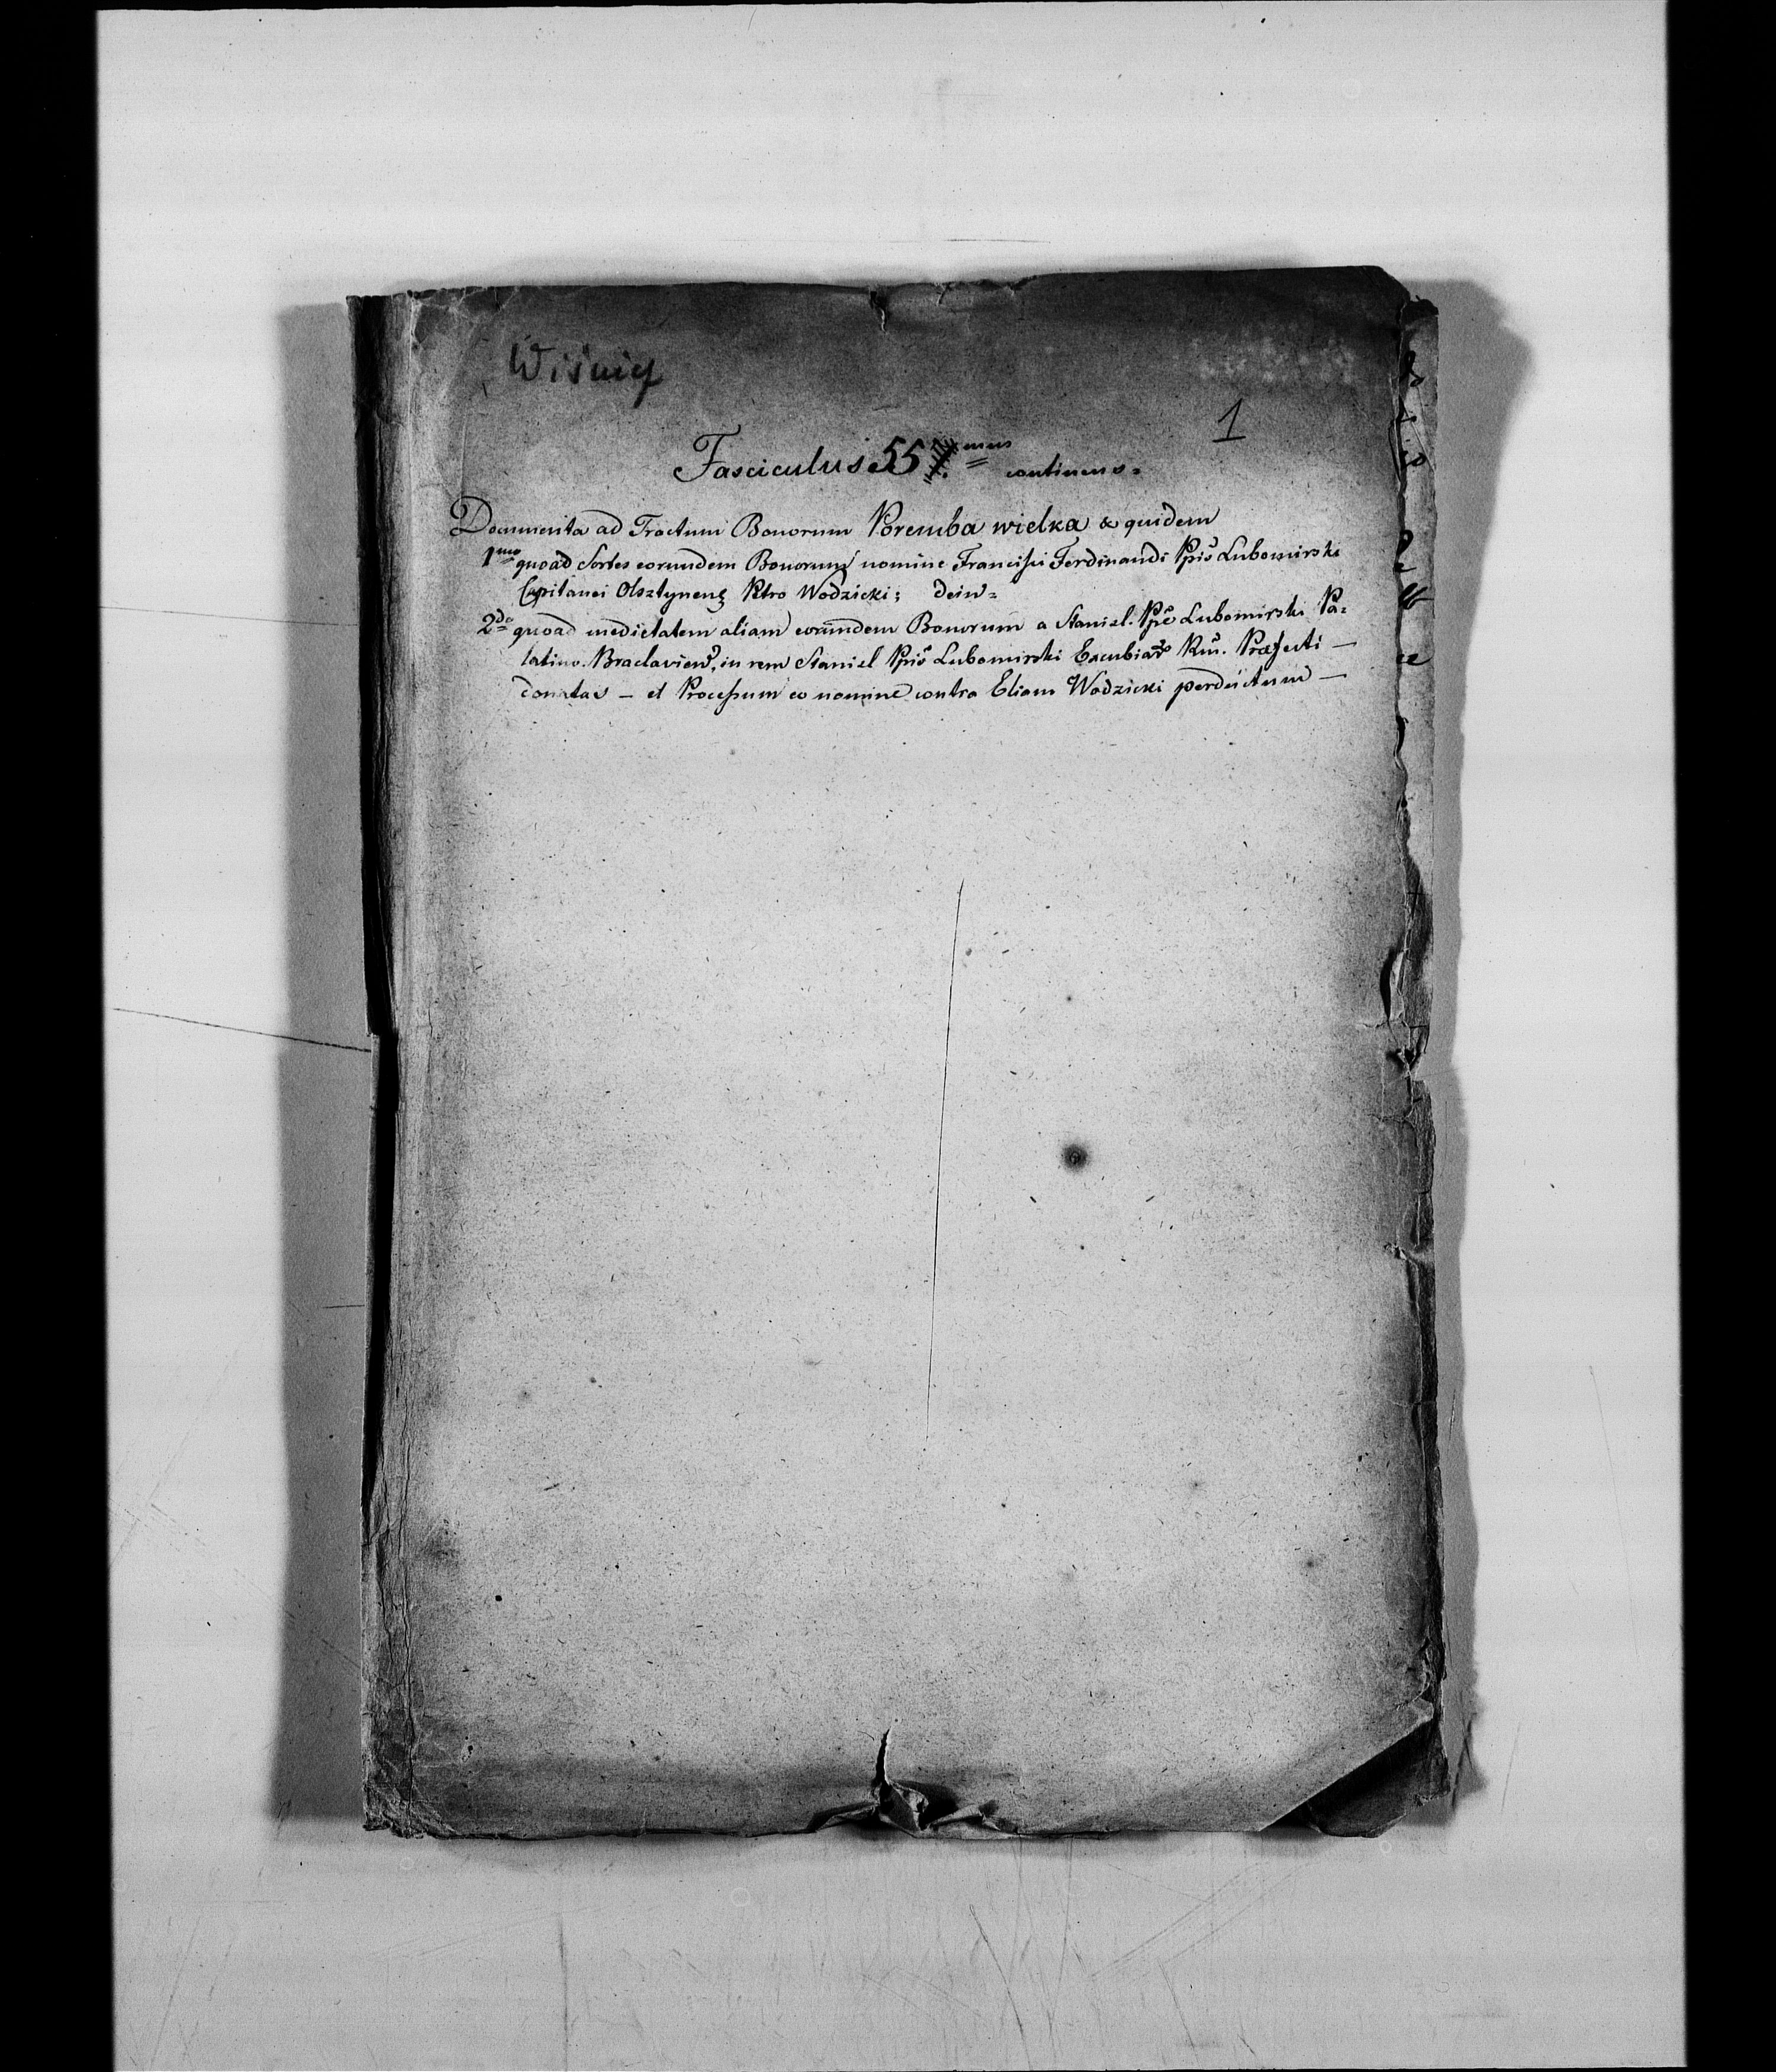 Wiśnicz
1
Fasciculus 55 mus continens =
Documenta ad Tractum Bonorum Poremba wielka & quidem
1mo quoad Sortes eorundem Bonorum nomine Francisci Ferdinandi Ppis Lubomirski
Capitanei Olsztynens Petro Wodzicki; dein =
2do quoad medietatem aliam eorundem Bonorum a Stanisl. Ppe Lubomirski Pa=
latino Braclavien, in rem Stanisl Ppis Lubomirski Excubiar Rni. Præfecti —
donatas — et Processum eo nomine contra Eliam Wodzicki perductum —